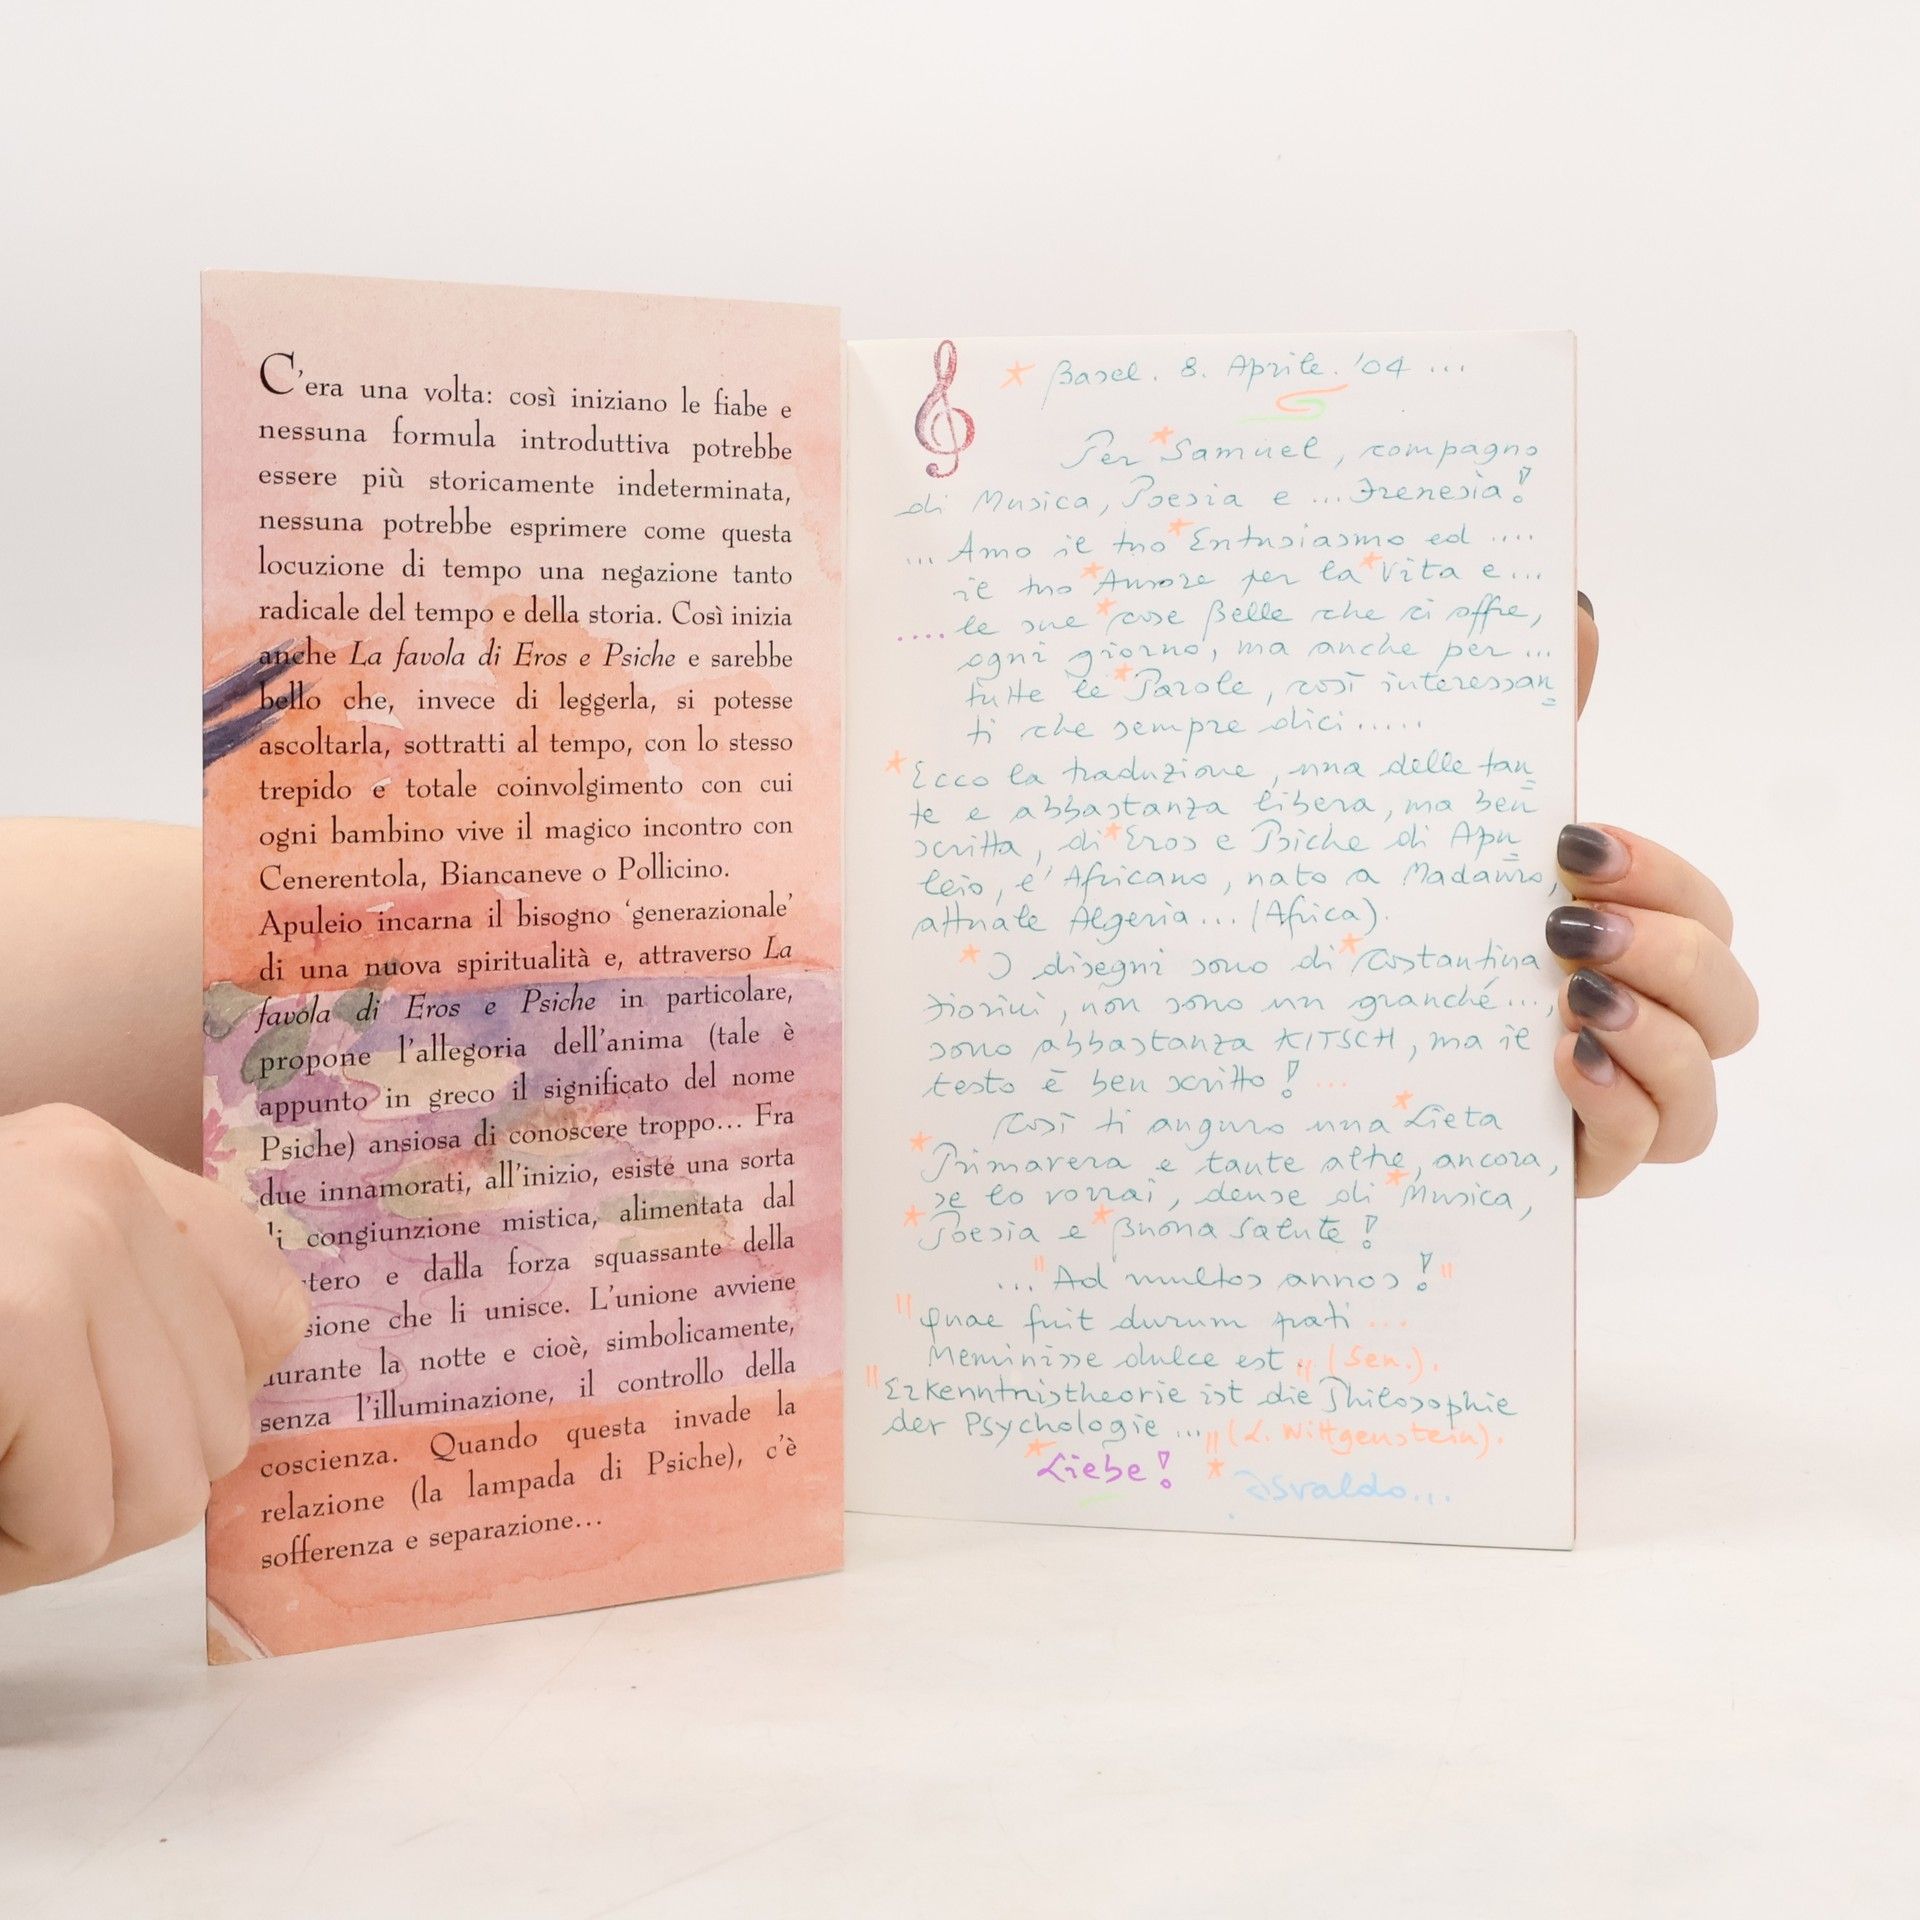 C'era una volta: così iniziano le fiabe e
nessuna formula introduttiva potrebbe
essere più storicamente indeterminata,
nessuna potrebbe esprimere come questa
locuzione di tempo una negazione tanto
radicale del tempo e della storia. Così inizia
anche La favola di Eros e Psiche e sarebbe
bello che, invece di leggerla, si potesse
ascoltarla, sottratti al tempo, con lo stesso
trepido e totale coinvolgimento con cui
ogni bambino vive il magico incontro con
Cenerentola, Biancaneve o Pollicino.
Apuleio incarna il bisogno 'generazionale'
di una nuova spiritualità e, attraverso La
favola di Eros e Psiche in particolare,
propone l'allegoria dell'anima (tale è
appunto in greco il significato del nome
Psiche) ansiosa di conoscere troppo... Fra
due innamorati, all'inizio, esiste una sorta
congiunzione mistica, alimentata dal
e dalla forza squassante della
che li unisce. L'unione avviene
durante la notte e cioè, simbolicamente,
senza l'illuminazione, il controllo della
coscienza. Quando questa invade la
relazione (la lampada di Psiche), c'è
sofferenza e separazione...
* Basel. 8. Aprile. '04 ...
Per *Samuel, compagno
di Musica, Poesia e ... Frenesia!
... Amo il tuo *Entusiasmo ed ....
il tuo *Amore per la *Vita e...
.... le sue *cose Belle che ci offre,
ogni giorno, ma anche per ...
tutte le *Parole, così interessan=
ti che sempre dici .....
*Ecco la traduzione, una delle tan=
te e abbastanza libera, ma ben
scritta, di *Eros e Psiche di Apu=
leio, e' Africano, nato a Madauro,
attuale Algeria ... (Africa).
*I disegni sono di *Costantina
Fiorini, non sono un granché ...,
sono abbastanza KITSCH, ma il
testo è ben scritto! ...
Così ti auguro una *Lieta
*Primavera e tante altre, ancora,
se lo vorrai, dense di *Musica,
*Poesia e *Buona Salute!
... "Ad multos annos!"
"Quae fuit durum pati ...
Meminisse dulce est" (Sen.).
"Erkenntnistheorie ist die Philosophie
der Psychologie ..." (L. Wittgenstein).
*Liebe! * Osvaldo...